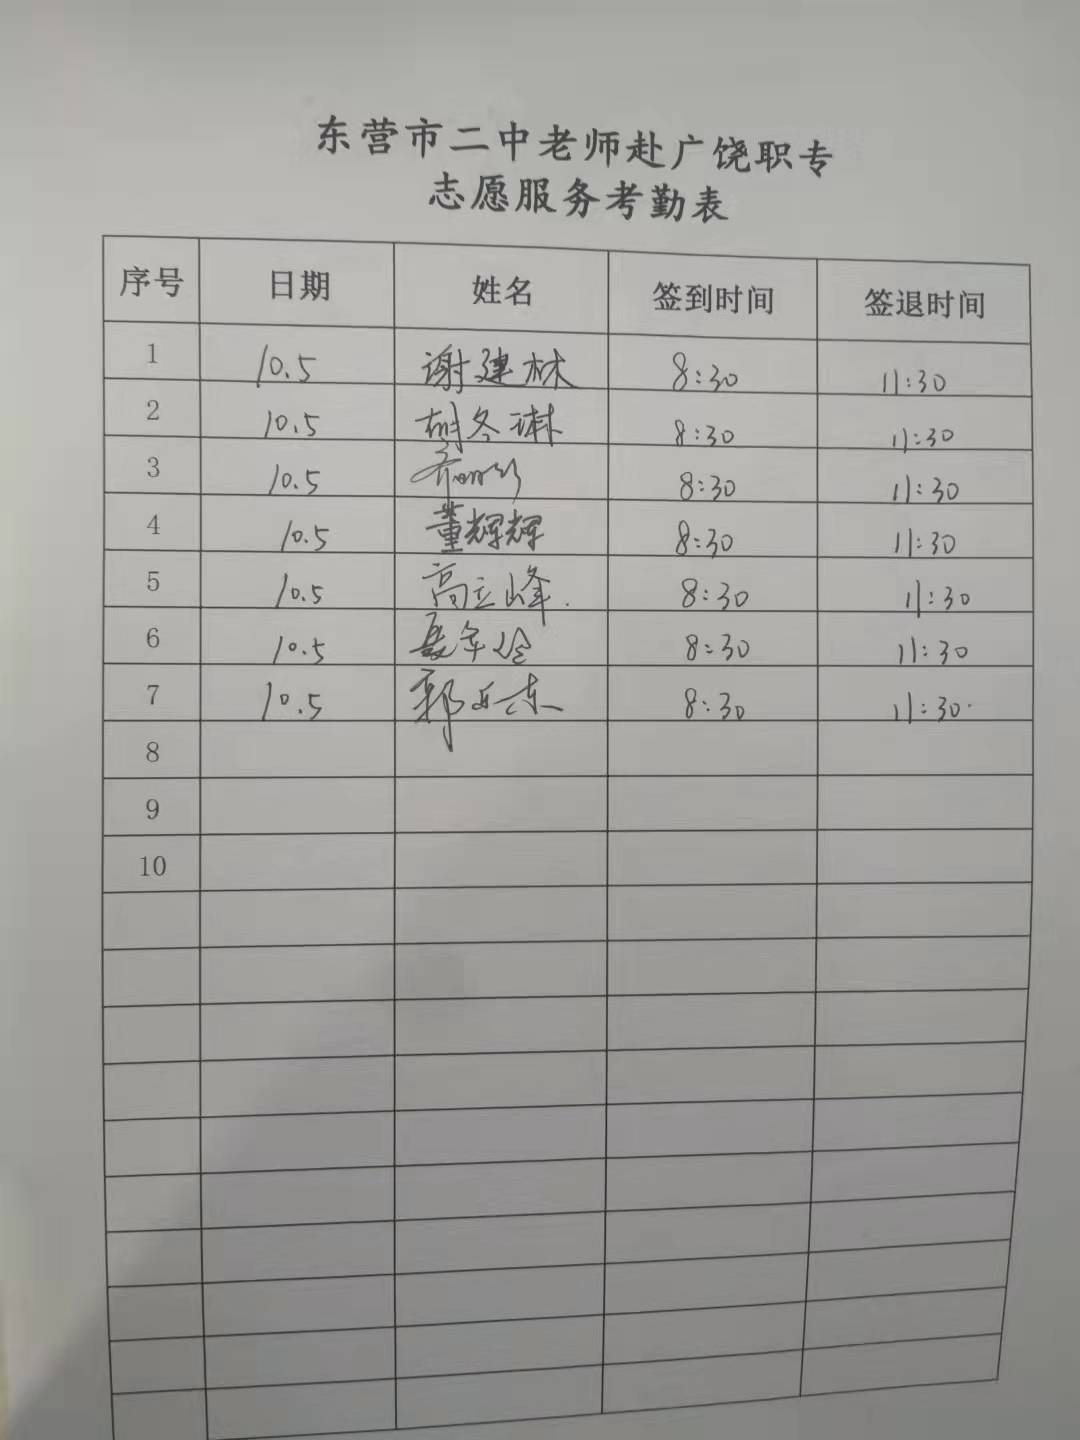 东营市二中老师赴广饶职专
志愿服务考勤表
序号 日期 姓名 签到时间 签退时间
1 10.5 谢建林 8:30 11:30
2 10.5 胡冬琳 8:30 11:30
3 10.5 8:30 11:30
4 10.5 董辉辉 8:30 11:30
5 10.5 高立峰. 8:30 11:30
6 10.5 8:30 11:30
7 10.5 8:30 11:30.
8
9
10